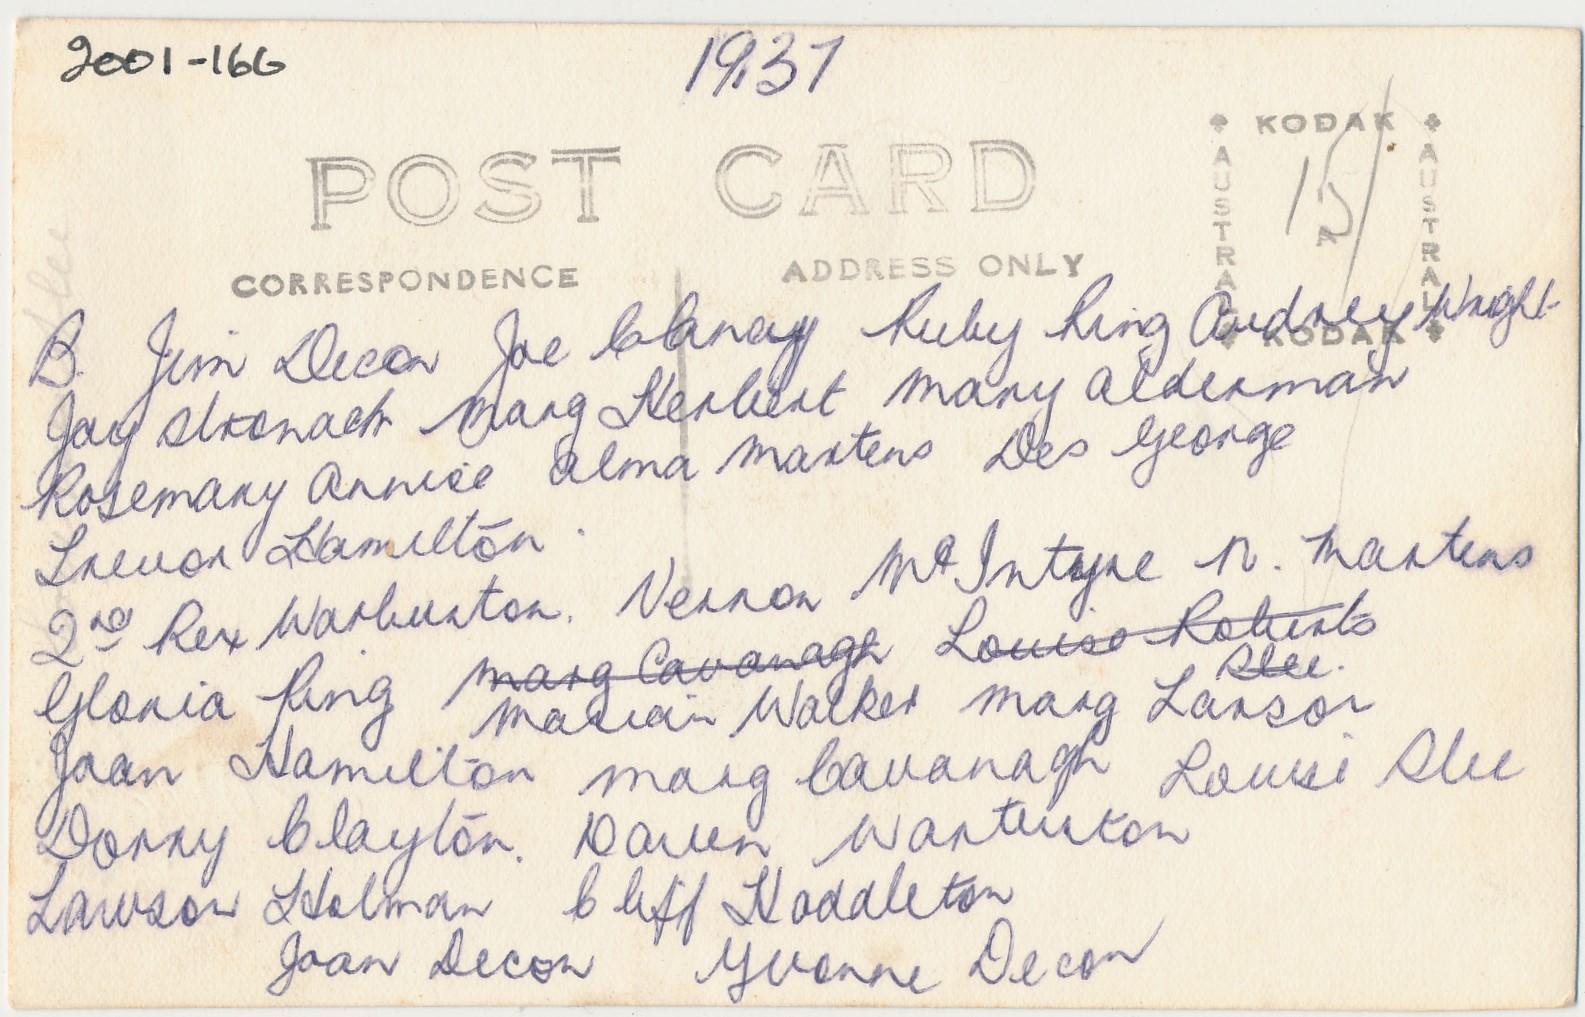 2001-166
1937
POST CARD
CORRESPONDENCE ADDRESS ONLY
KODAK
AUSTRAL
15/
A
AUSTRAL
KODAK
B. Jim Decon Joe Clancy Ruby King Audrey Wright
Joy Stronach Marg Herbert Mary Alderman
Rosemary Annice Alma Martens Des George
Trevor Hamilton.
2nd Rex Warburton. Vernon McIntyre N. Martens
Gloria King Marg Cavanagh Louise Roberts
Slee.
Marian Walker Marg Larsor
Joan Hamilton Marg Cavanagh Louise Slee
Dorry Clayton. Daven Warburton
Lawson Holman Cliff Hoddleton
Joan Decon Yvonne Decon